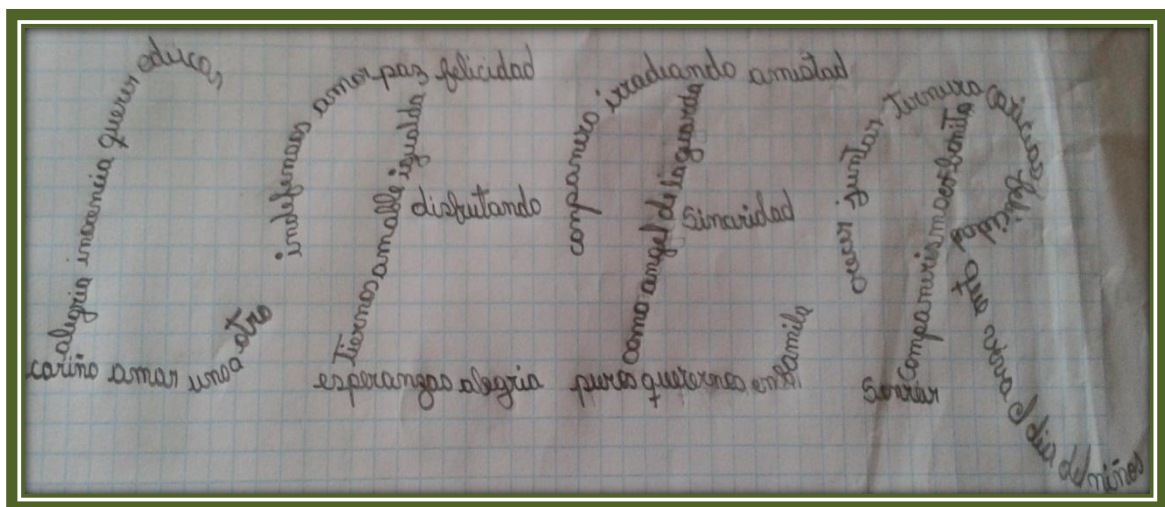 alegria inocencia querer educar
cariño amar uno a otro
indefensos amor paz felicidad
disfrutando
esperanzas alegria
companero irradiando amistad
como angel de la guarda
Sinceridad
puros querernos en familia
crecer juntar ternura caricias felicidad
companerismo es bonito
el dia del niños